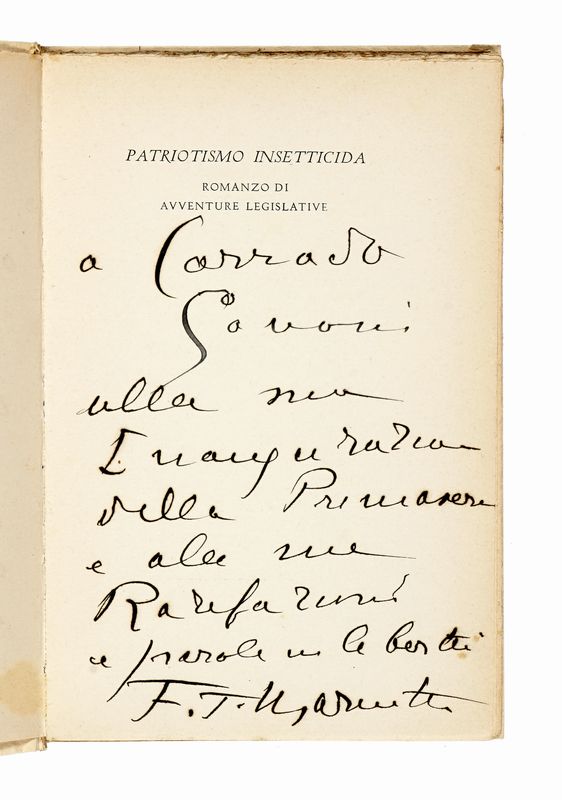 PATRIOTISMO INSETTICIDA
ROMANZO DI
AVVENTURE LEGISLATIVE
a Corrado
Govoni
alla sua
Inaugurazione
della Primavera
e alle sue
Rarefazioni
e parole in libertà
F. T. Marinetti